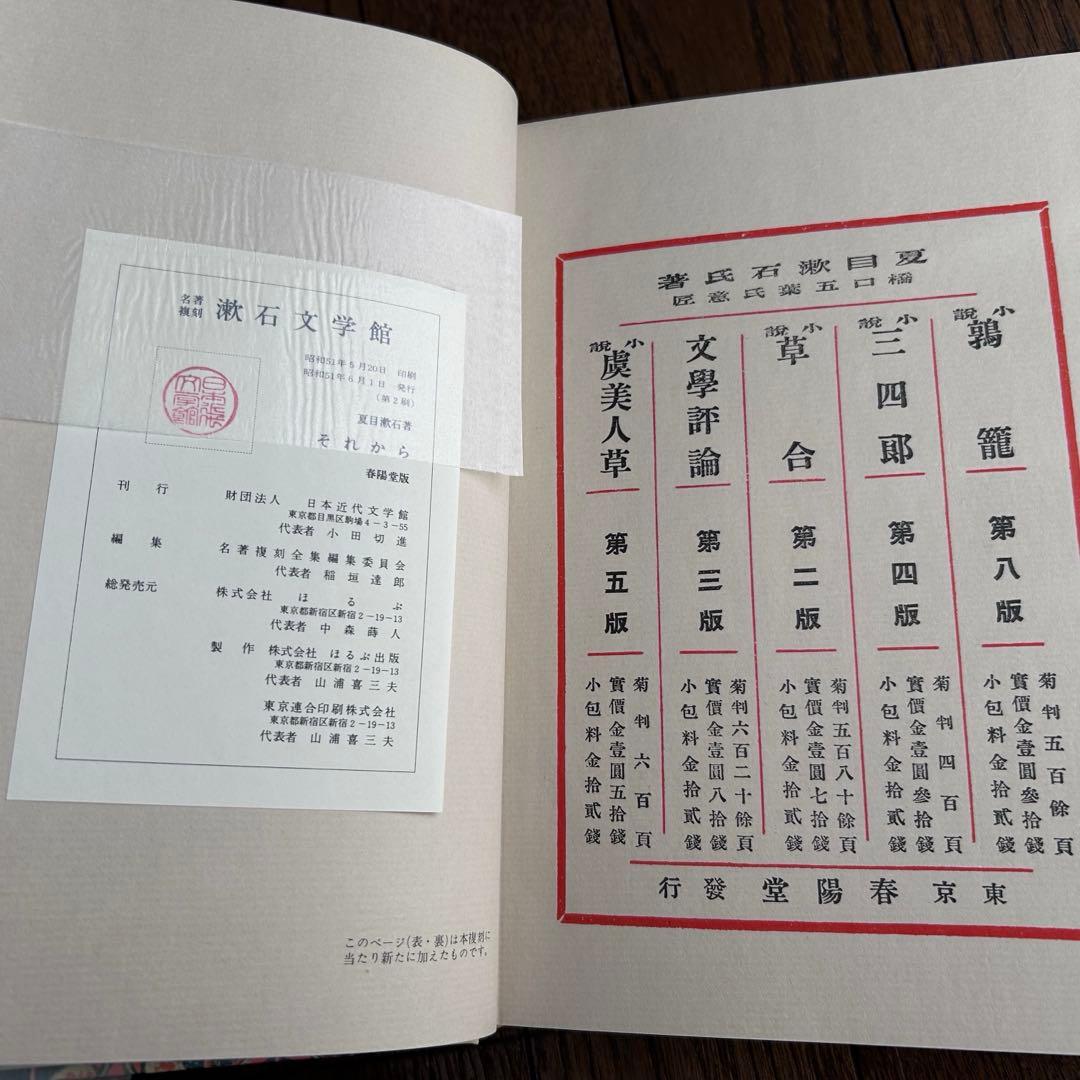 名著
複刻
漱石文学館
昭和51年5月20日 印刷
昭和51年6月1日 発行
(第2刷)
夏目漱石著
それから
春陽堂版
刊行 財団法人 日本近代文学館
東京都目黒区駒場4-3-55
代表者 小田切進
編集 名著複刻全集編集委員会
代表者 稲垣達郎
総発売元 株式会社 ほるぷ
東京都新宿区新宿2-19-13
代表者 中森蒔人
製作 株式会社 ほるぷ出版
東京都新宿区新宿2-19-13
代表者 山浦喜三夫
東京連合印刷株式会社
東京都新宿区新宿2-19-13
代表者 山浦喜三夫
このページ(表・裏)は本複刻に
当たり新たに加えたものです。
夏目漱石氏著
橋口五葉氏意匠
小説
鶉籠
第八版
菊判五百餘頁
實價金壹圓參拾錢
小包料金拾貳錢
小説
三四郎
第四版
菊判四百頁
實價金壹圓參拾錢
小包料金拾貳錢
小説
草合
第二版
菊判五百八十餘頁
實價金壹圓七拾錢
小包料金拾貳錢
文學評論
第三版
菊判六百二十餘頁
實價金壹圓八拾錢
小包料金拾貳錢
小説
虞美人草
第五版
菊判六百頁
實價金壹圓五拾錢
小包料金拾貳錢
東京春陽堂發行